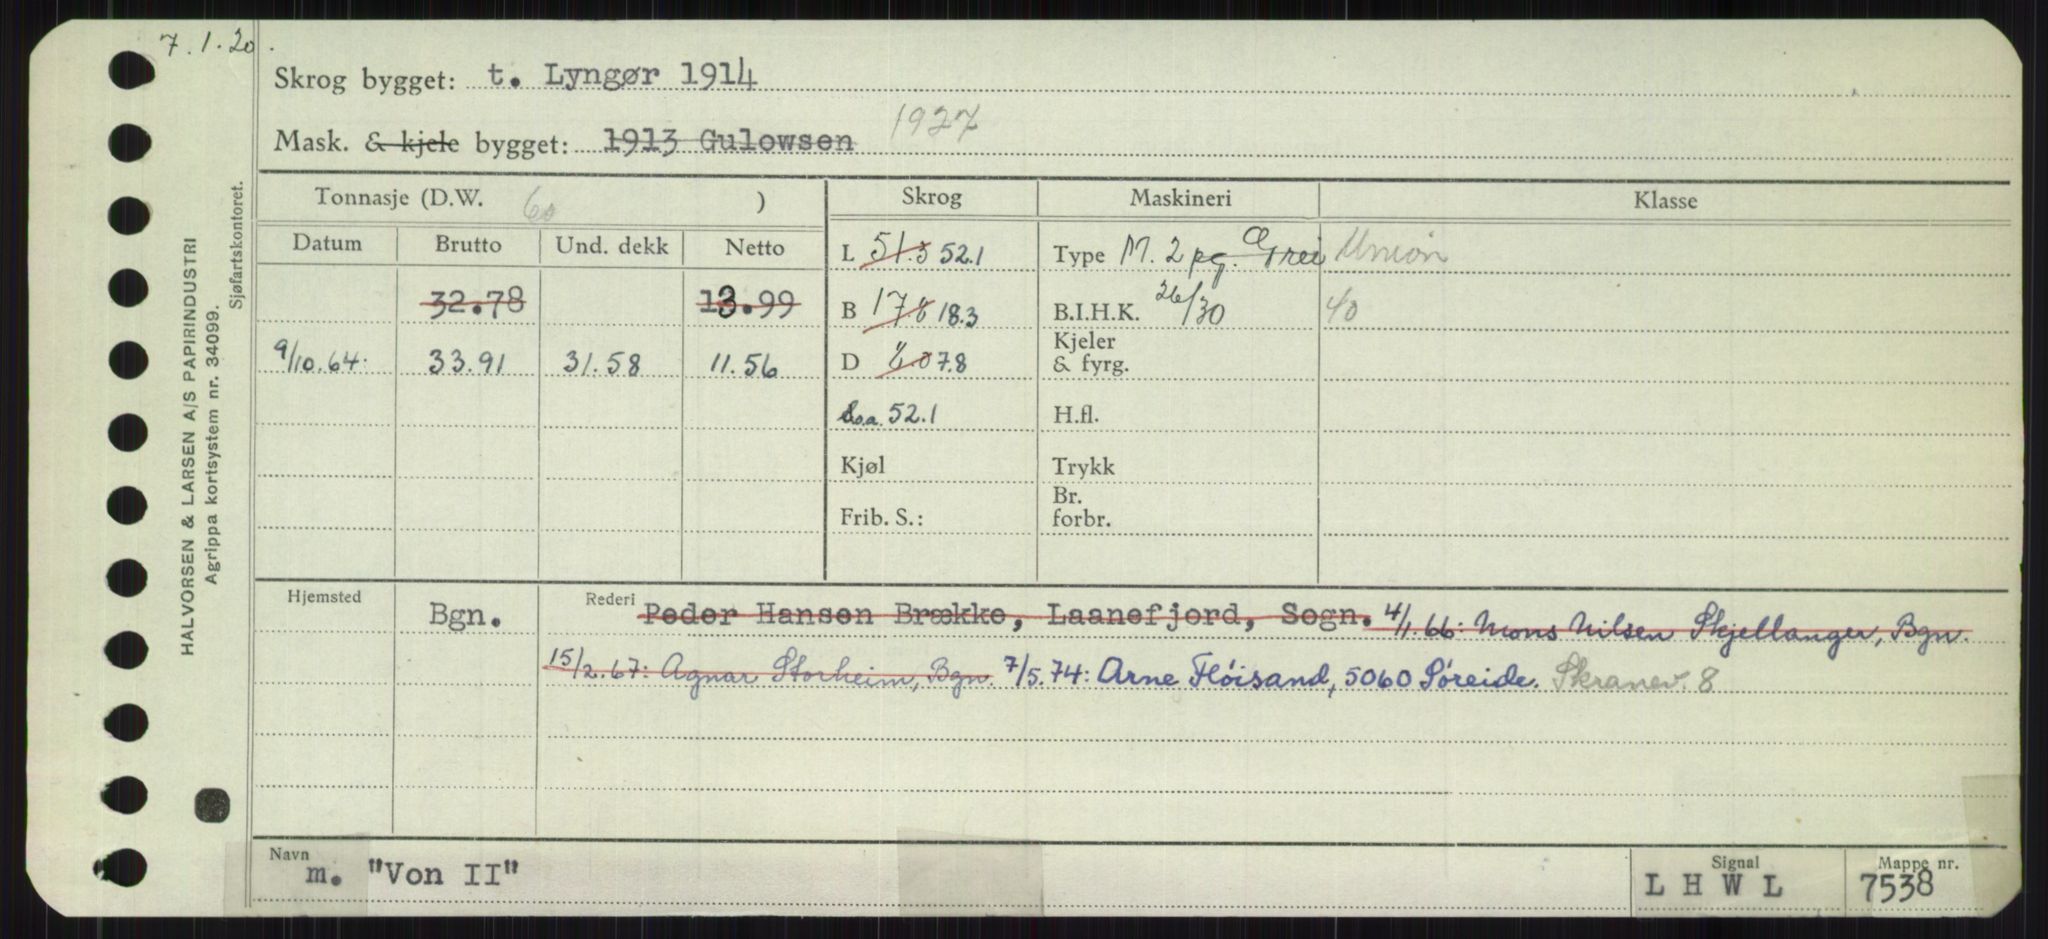 7.1.20.
Skrog bygget: t. Lyngør 1914
Mask. & kjele bygget: 1913 Gulowsen 1927
Tonnasje (D.W. 60 )
Skrog
Maskineri
Klasse
Datum Brutto Und. dekk Netto
L 51.3 52.1
Type M. 2 pg. Grei Union
32.78 13.99
B 17.8 18.3
B.I.H.K. 26/30 40
9/10.64. 33.91 31.58 11.56
D 8.0 7.8
Kjeler
& fyrg.
L.o.a. 52.1
H.fl.
Kjøl
Trykk
Frib. S.:
Br.
forbr.
Hjemsted Bgn.
Rederi Peder Hansen Brække, Laanefjord, Sogn. 4/1.66: Mons Nilsen Skjellanger, Bgn.
15/2.67: Agnar Storheim, Bgn. 7/5.74: Arne Fløisand, 5060 Søreide. Skranev. 8
Navn m. "Von II"
Signal L H W L
Mappe nr. 7538
HALVORSEN & LARSEN A/S PAPIRINDUSTRI
Agrippa kortsystem nr. 34099.
Sjøfartskontoret.